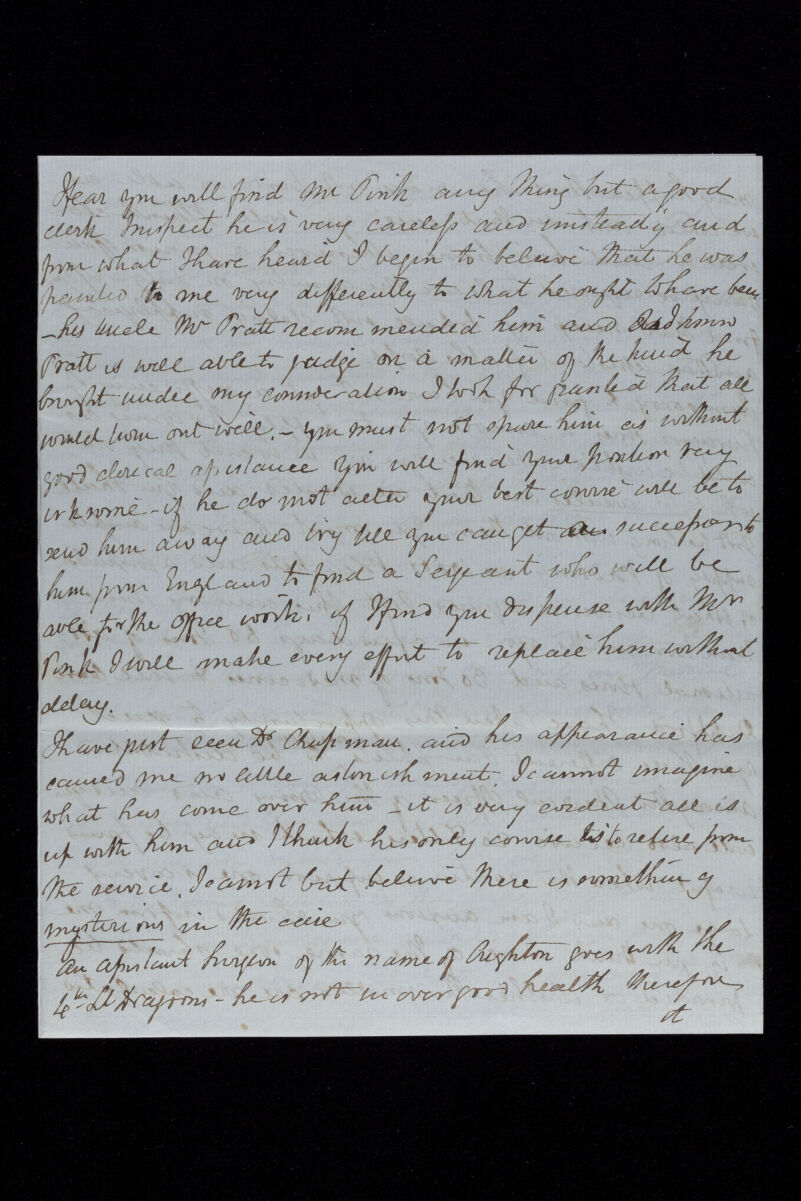 I fear you will find Mr Pink any thing but a good
clerk I suspect he is very careless and unsteady and
from what I have heard I begin to believe that he was
painted to me very differently to what he ought to have been
- his uncle Mr Pratt recommended him and as I know
Pratt is well able to judge on a matter of the kind he
brought under my consideration I took for granted that all
would turn out well. - you must not spare him as without
good clerical assistance you will find your position very
irksome - if he do not alter your best course will be to
send him away and try till you can get a successor to
him from England to find a Sergeant who will be
able for the office work. if I find you dispense with Mr
Pink I will make every effort to replace him without
delay.
I have just seen Dr Chapman. and his appearance has
caused me no little astonishment. I cannot imagine
what has come over him - it is very evident all is
up with him and I think his only course is to retire from
the service. I cannot but believe there is something
mysterious in the case
An assistant Surgeon of the name of Crighton goes with the
4th Lt Dragoons - he is not in over good health therefore
it